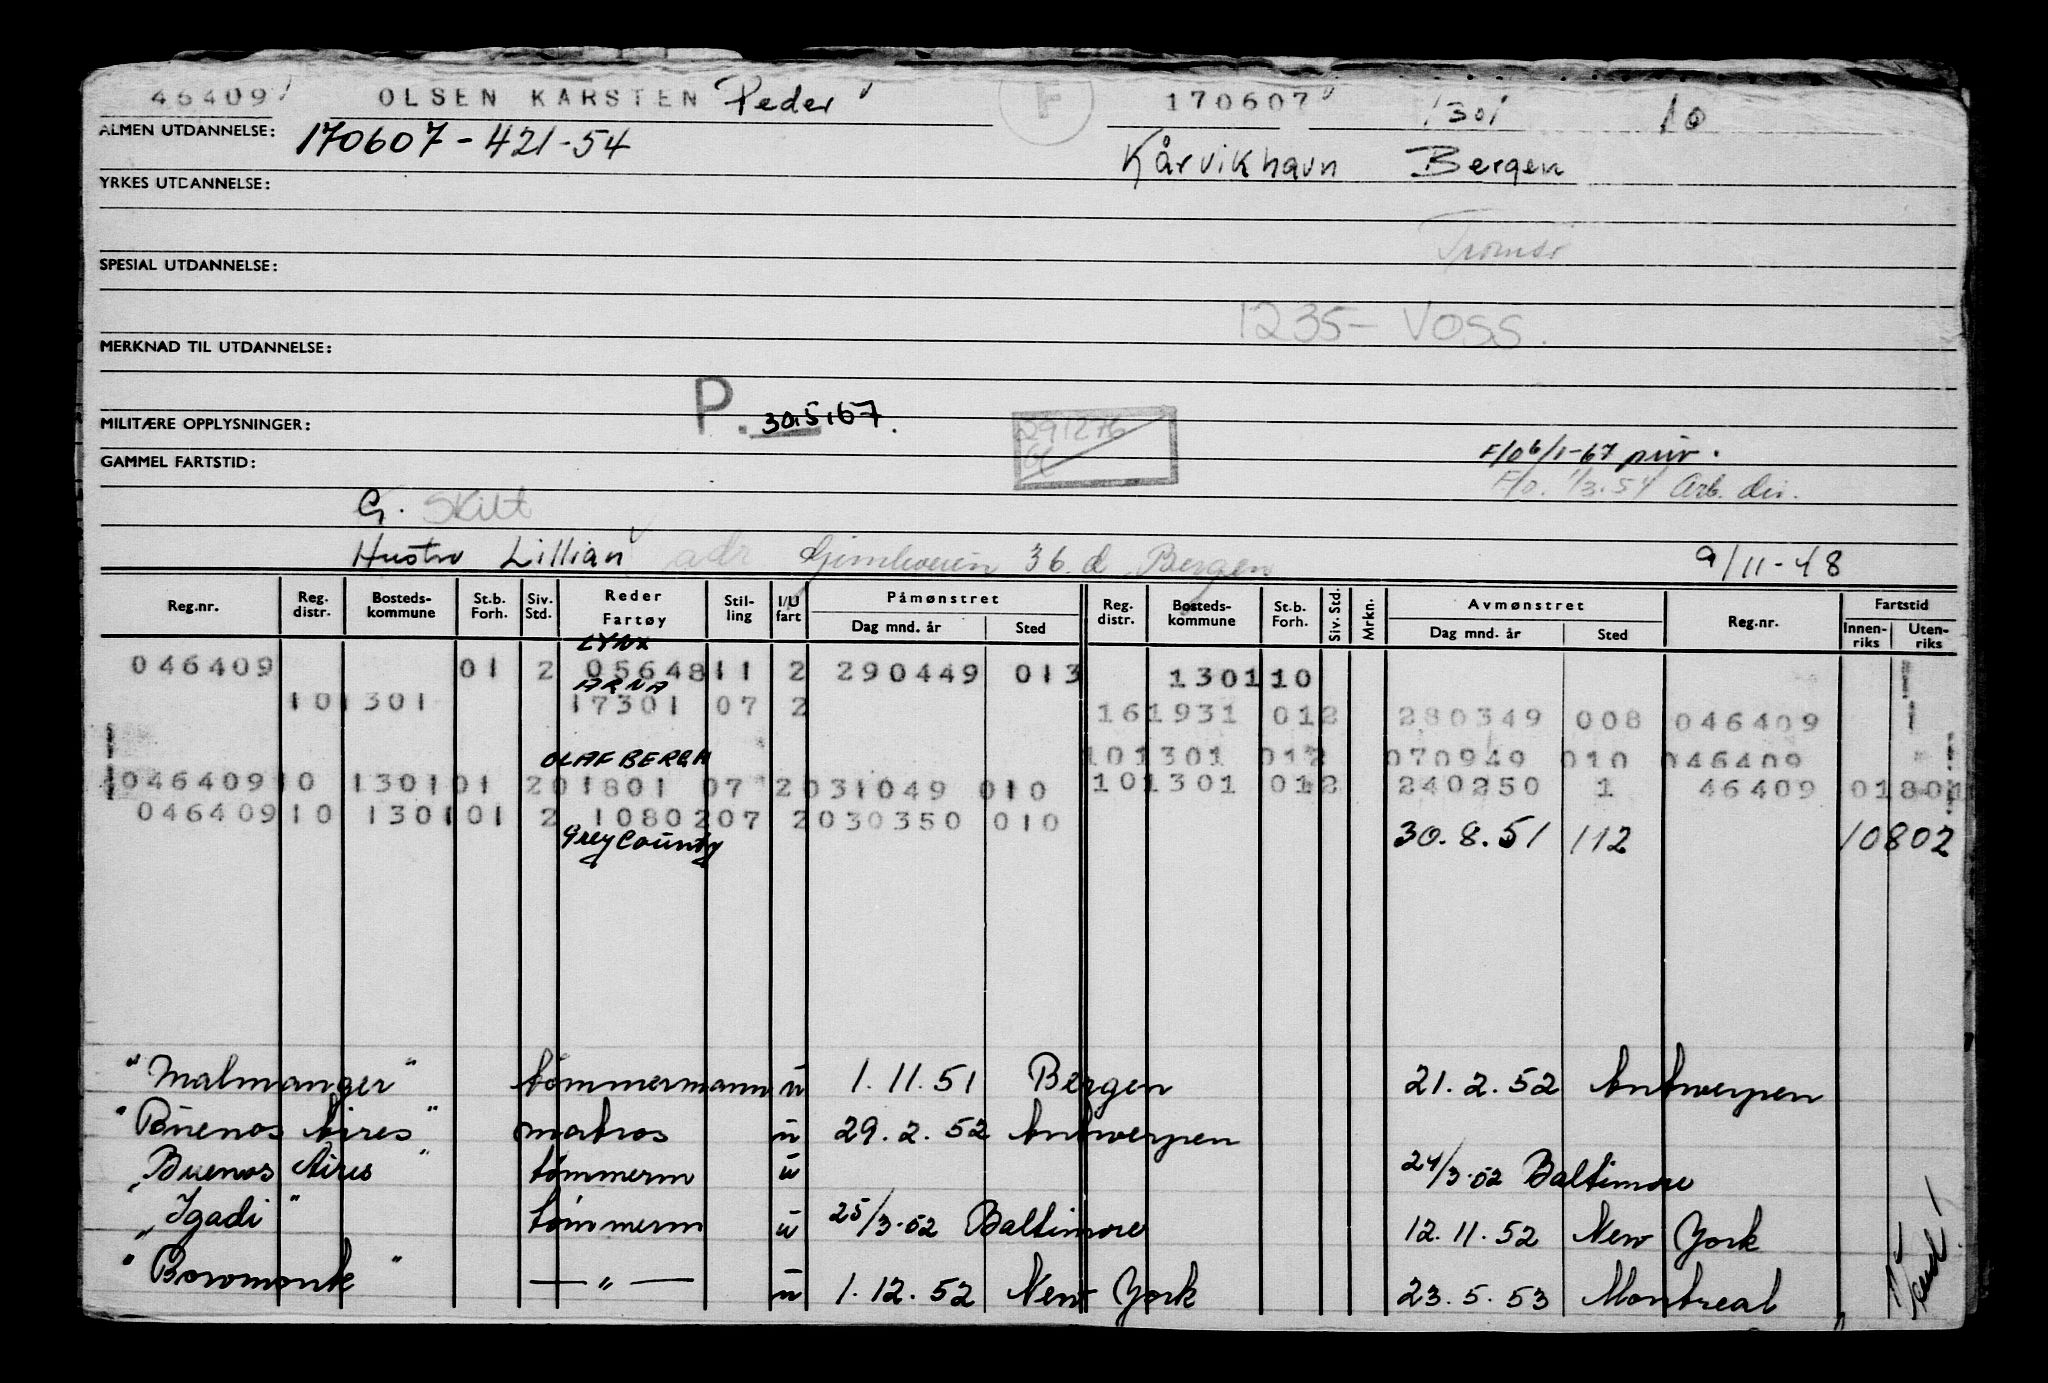 46409 OLSEN KARSTEN Peder F 170607 1301 10
ALMEN UTDANNELSE: 170607-421-54 Kårvikhavn Bergen
YRKES UTDANNELSE:
Tromsø
SPESIAL UTDANNELSE:
1235- VOSS.
MERKNAD TIL UTDANNELSE:
P. 30.5.67.
MILITÆRE OPPLYSNINGER: 291276
F/o 6/1-67 priv.
GAMMEL FARTSTID:
F/o. 1/3.54 Arb. dir.
G. Skilt
Hustru Lillian adr Gimleveien 36.d Bergen 9/11-48
Reg.nr. Reg. distr. Bosteds- kommune St.b. Forh. Siv. Std. Reder Fartøy Stil- ling I/U fart Påmønstret Dag mnd. år Sted Reg. distr. Bosteds- kommune St.b. Forh. Siv. Std. Mrkn. Avmønstret Dag mnd. år Sted Reg.nr. Fartstid Innen- riks Uten- riks
LYNX
046409 01 2 05648 11 2 290449 013 1301 10
ARNA
101301 17301 07 2 161931 012 280349 008 046409
OLAF BERGH 101301 012 070949 010 046409
046409 10 1301 01 2 01801 07 2 031049 010 101301 012 240250 1 46409 01801
046409 10 1301 01 2 10802 07 2 030350 010
Grey County 30.8.51 112 10802
"Malmanger" tømmermann u 1.11.51 Bergen 21.2.52 Antwerpen
"Buenos Aires" matros u 29.2.52 Antwerpen
"Buenos Aires" tømmerm u 24/3.52 Baltimore
"Igadi" tømmerm u 25/3.52 Baltimore 12.11.52 New York
"Bowmonk" — " — u 1.12.52 New York 23.5.53 Montreal